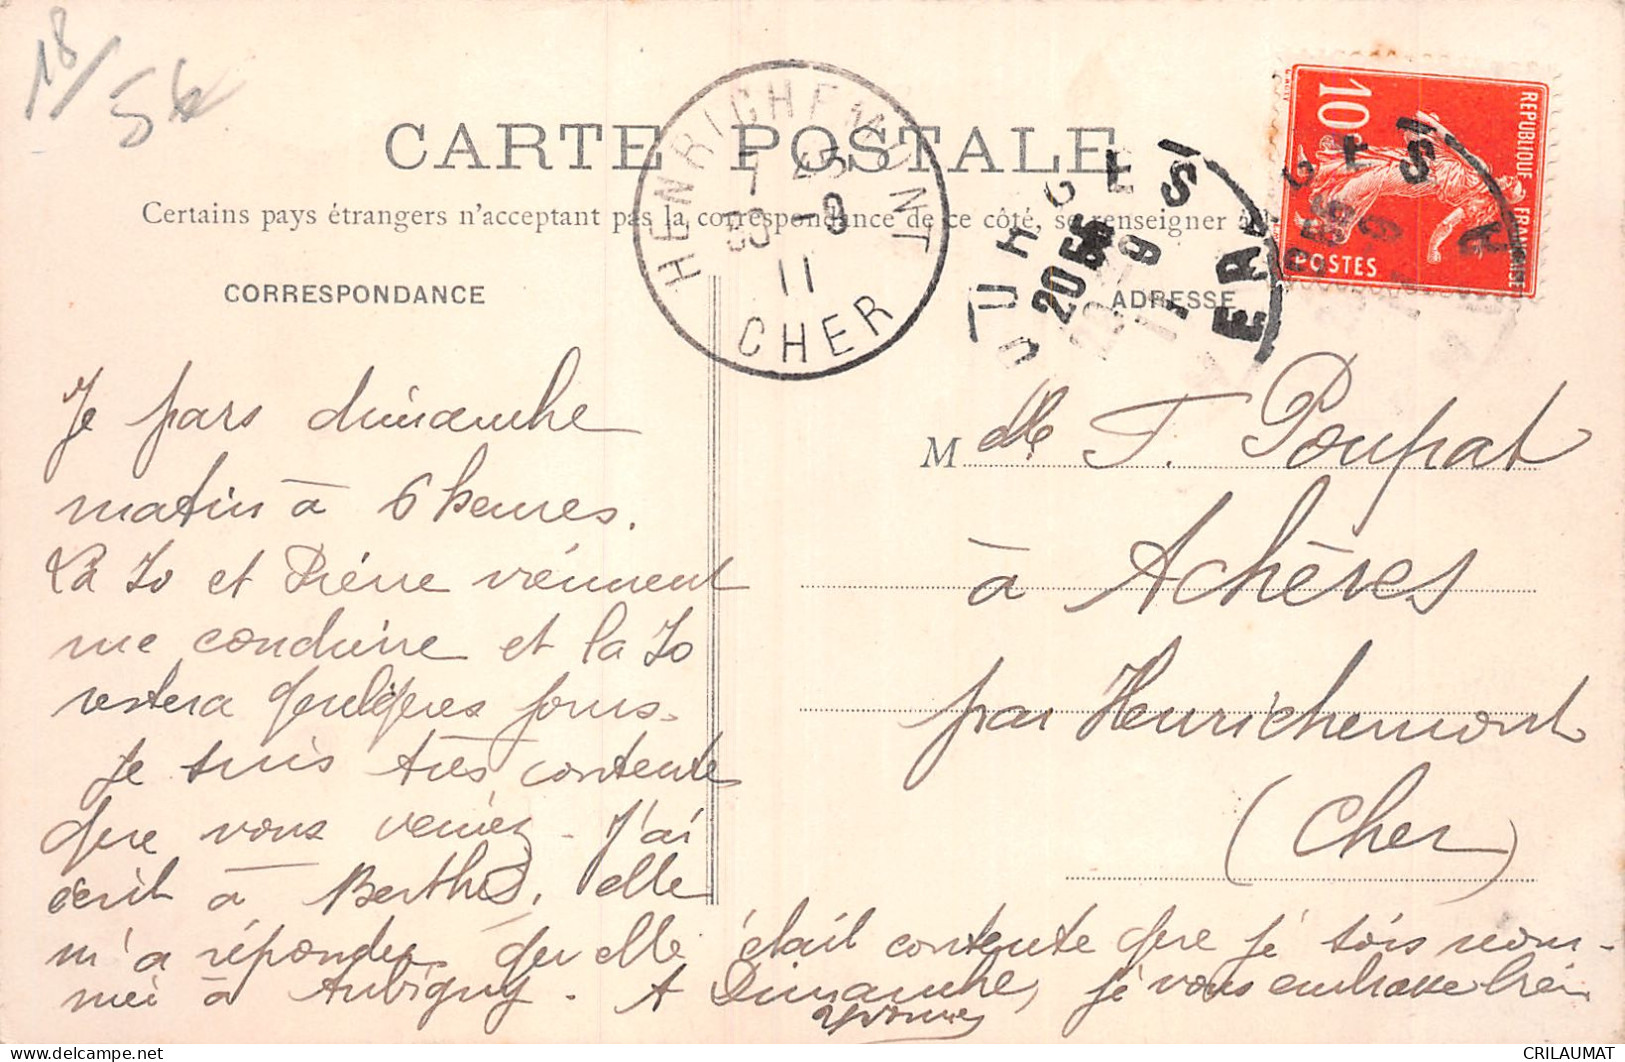 18/56
CARTE POSTALE
Certains pays étrangers n'acceptant pas la correspondance de ce côté, se renseigner à la
CORRESPONDANCE
ADRESSE
HENRICHEMONT
7 45
30 -9
11
CHER
20 55
9
REPUBLIQUE FRANÇAISE
10
POSTES
Je pars dimanche
matin à 6 heures.
La Jo et Pierre viennent
me conduire et la Jo
restera quelques jours.
Je suis très contente
que vous veniez. J'ai
écrit à Berthe, elle
m'a répondu qu'elle était contente que je sois nom-
mée à Aubigny. A Dimanche, je vous embrasse bien
Yvonne
M elle F. Poupat
à Achères
par Henrichemont
(Cher)
CRILAUMAT